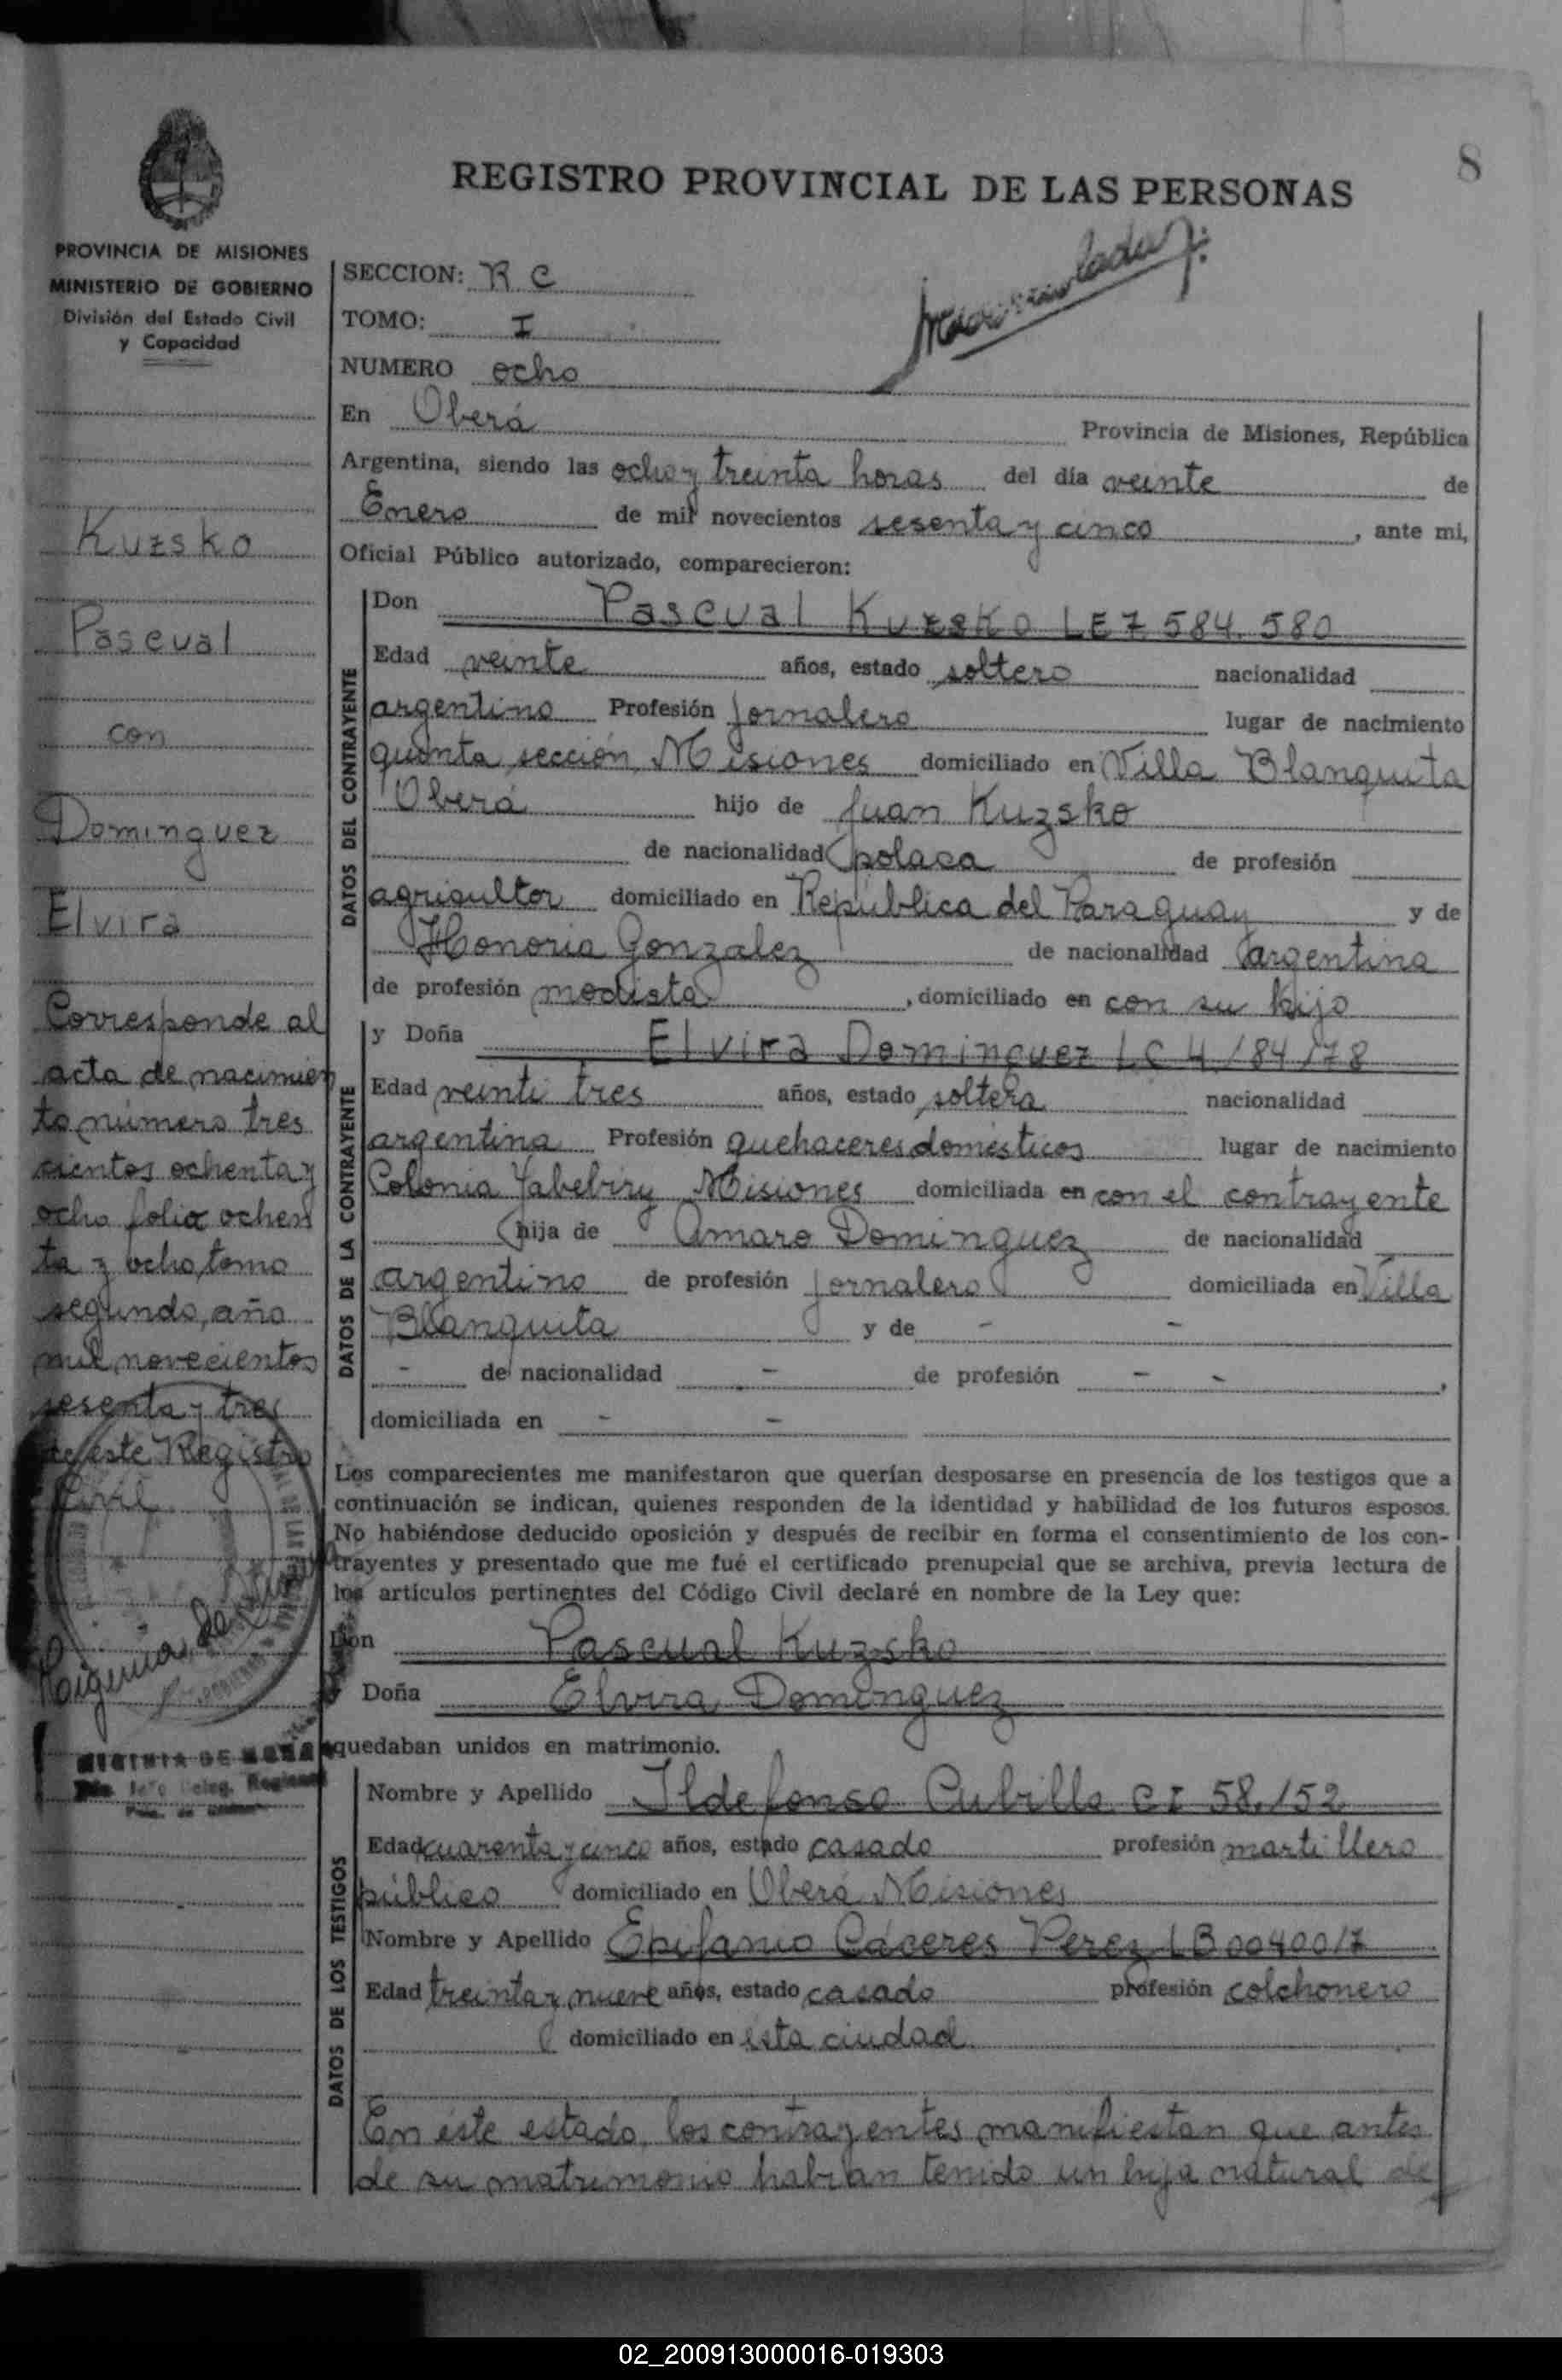 8
REGISTRO PROVINCIAL DE LAS PERSONAS
PROVINCIA DE MISIONES
MINISTERIO DE GOBIERNO
División del Estado Civil
y Capacidad
Kuzsko
Pascual
con
Dominguez
Elvira
Corresponde al
acta de nacimien
to número tres
cientos ochenta y
ocho folio ochen
ta y ocho, tomo
segundo, año
mil novecientos
sesenta y tres
de este Registro
Civil
SECCION: R C
TOMO: I
NUMERO ocho
En Oberá Provincia de Misiones, República
Argentina, siendo las ocho y treinta horas del día veinte de
Enero de mil novecientos sesenta y cinco, ante mi,
Oficial Público autorizado, comparecieron:
DATOS DEL CONTRAYENTE
Don Pascual Kuzsko LE 7 584.580
Edad veinte años, estado soltero nacionalidad
argentino Profesión jornalero lugar de nacimiento
quinta sección Misiones domiciliado en Villa Blanquita
Oberá hijo de Juan Kuzsko
de nacionalidad polaca de profesión
agricultor domiciliado en República del Paraguay y de
Honoria Gonzalez de nacionalidad argentina
de profesión modista, domiciliado en con su hijo
DATOS DE LA CONTRAYENTE
y Doña Elvira Dominguez LC 4/84/78
Edad veinti tres años, estado soltera nacionalidad
argentina Profesión quehaceres domésticos lugar de nacimiento
Colonia Yabebiry Misiones domiciliada en con el contrayente
hija de Amaro Dominguez de nacionalidad
argentino de profesión jornalero domiciliada en Villa
Blanquita y de - -
- de nacionalidad - de profesión - -,
domiciliada en - -
Los comparecientes me manifestaron que querían desposarse en presencia de los testigos que a
continuación se indican, quienes responden de la identidad y habilidad de los futuros esposos.
No habiéndose deducido oposición y después de recibir en forma el consentimiento de los con-
trayentes y presentado que me fué el certificado prenupcial que se archiva, previa lectura de
los artículos pertinentes del Código Civil declaré en nombre de la Ley que:
Don Pascual Kuzsko
y Doña Elvira Dominguez
quedaban unidos en matrimonio.
DATOS DE LOS TESTIGOS
Nombre y Apellido Ildefonso Cubilla CI 58./52
Edad cuarenta y cinco años, estado casado profesión martillero
público domiciliado en Oberá Misiones
Nombre y Apellido Epifanio Cáceres Perez LB 00400/7
Edad treinta y nueve años, estado casado profesión colchonero
domiciliado en esta ciudad
En éste estado, los contrayentes manifiestan que antes
de su matrimonio habian tenido un hija natural de
02_200913000016-019303